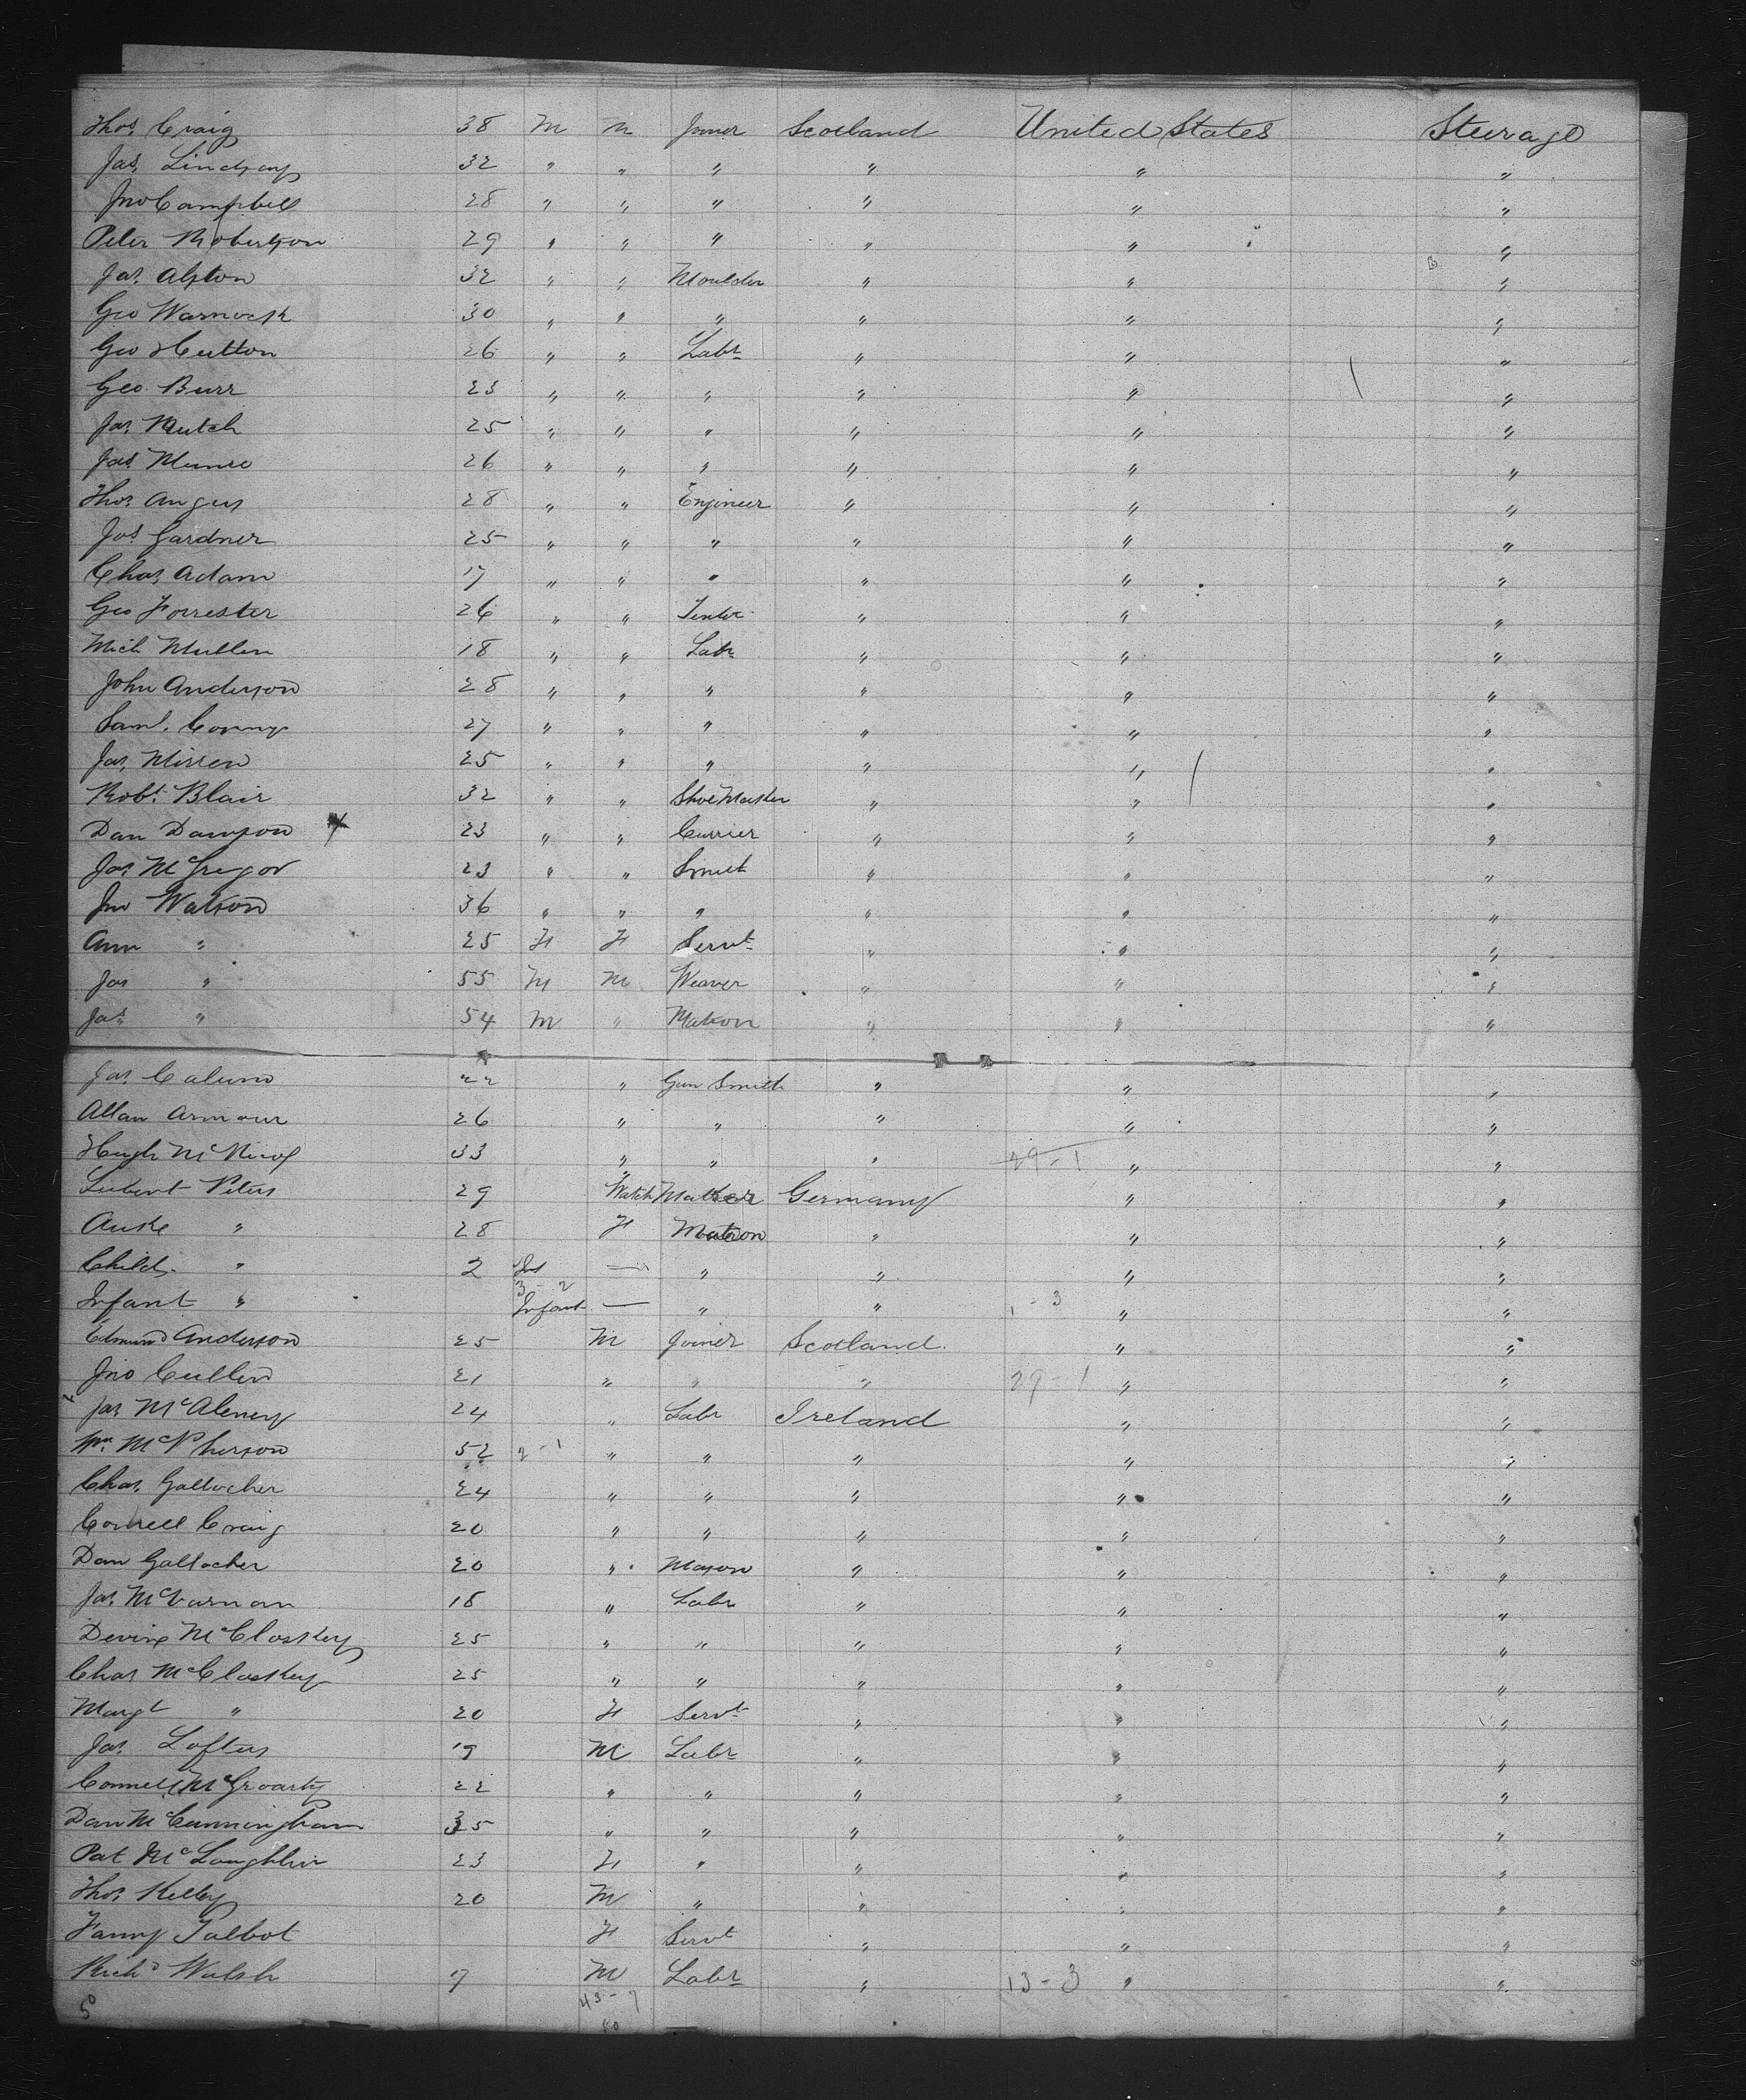 Thos. Craig 38 M M Joiner Scotland United States Steerage
Jas. Lindsay 32 " " " " " "
Jno Campbell 28 " " " " " "
Peter Robertson 29 " " " " " "
Jas. Alston 32 " " Moulder " " "
Geo Warnock 30 " " " " " "
Geo Hutton 26 " " Labr " " "
Geo. Burr 23 " " " " " "
Jas. Mutch 25 " " " " " "
Jas. Munro 26 " " " " " "
Thos. Angus 28 " " Engineer " " "
Jos. Gardner 25 " " " " " "
Chas. Adam 17 " " " " " "
Geo Forrester 26 " " Tenter " " "
Mich Mullen 18 " " Labr " " "
John Anderson 28 " " " " " "
Saml. 27 " " " " " "
Jas. Mirren 25 " " " " " "
Robt. Blair 32 " " Shoe Maker " " "
Dan Dawson 23 " " Currier " " "
Jas. McGregor 23 " " Smith " " "
Jno Watson 36 " " " " " "
Ann " 25 F F Servt " " "
Jas " 55 M M Weaver " " "
Jas. " 54 M " " " "
Jas. Calum 22 " Gun Smith " " "
Allan Armour 26 " " " " "
Hugh McNicol 33 " " " 29-1 " "
Lubert Peters 29 " Watch Maker Germany " "
Auke " 28 F Matron " " "
Child " 2 — " " " "
3-2
Infant " Infant — " " 1-3 " "
Edmund Anderson 25 M Joiner Scotland " "
Jno Cullen 21 " " " 29-1 " "
Jas. McAleney 24 " Labr Ireland " "
Wm. McPherson 52 2-1 " " " " "
Chas. Gallocher 24 " " " " "
Connell Craig 20 " " " " "
Dan Gallocher 20 " Mason " " "
Jas. McVarnan 18 " Labr " " "
McCloskey 25 " " " " "
Chas McCloskey 25 " " " " "
Margt " 20 F Servt " " "
Jas. Loftus 19 M Labr " " "
Connell McGroarty 22 " " " " "
Dan McCunningham 35 " " " " "
Pat McLoughlin 23 F " " " "
Thos. Kelley 20 M " " " "
Fanny Talbot F Servt " " "
Richd Walsh 7 M Labr " 13-3 " "
50 43-7